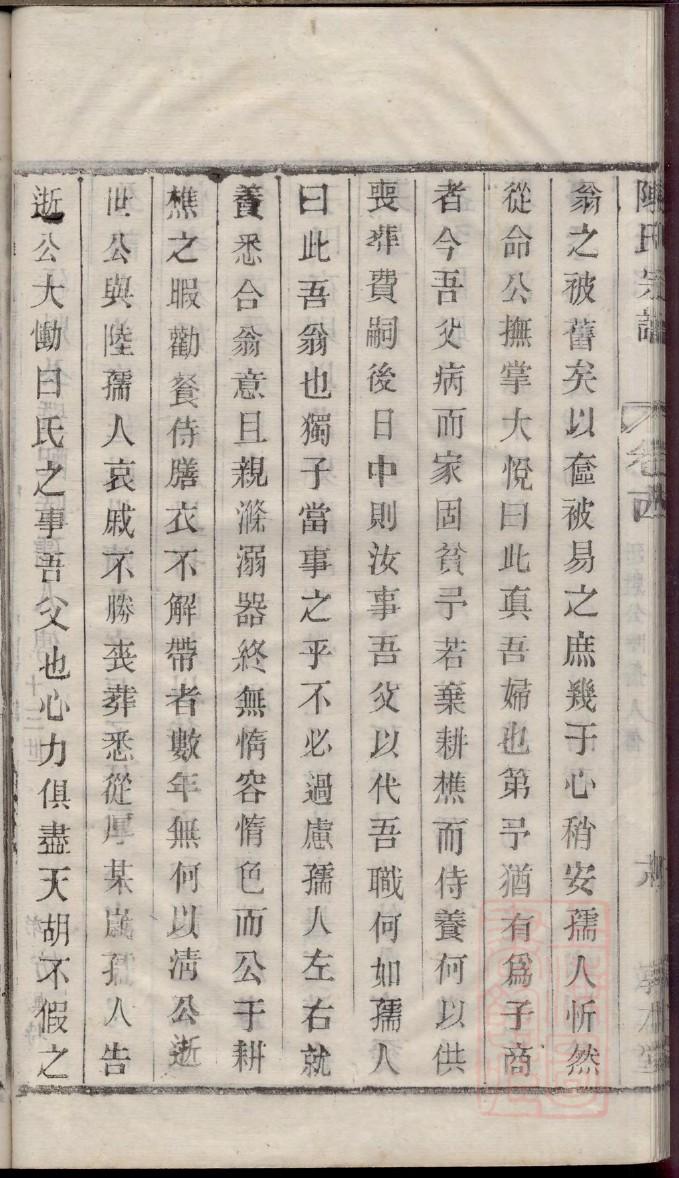 陳氏宗譜 卷四 敦本堂
翁之被舊矣以奩被易之庶幾于心稍安孺人忻然
從命公撫掌大悅曰此真吾婦也第予猶有為子商
者今吾父病而家固貧予若棄耕樵而侍養何以供
喪葬費嗣後日中則汝事吾父以代吾職何如孺人
曰此吾翁也獨子當事之乎不必過慮孺人左右就
養悉合翁意且親滌溺器終無惰容惰色而公于耕
樵之暇勸餐侍膳衣不解帶者數年無何以清公逝
世公與陸孺人哀戚不勝喪葬悉從厚某歲孺人告
逝公大慟曰氏之事吾父也心力俱盡天胡不假之